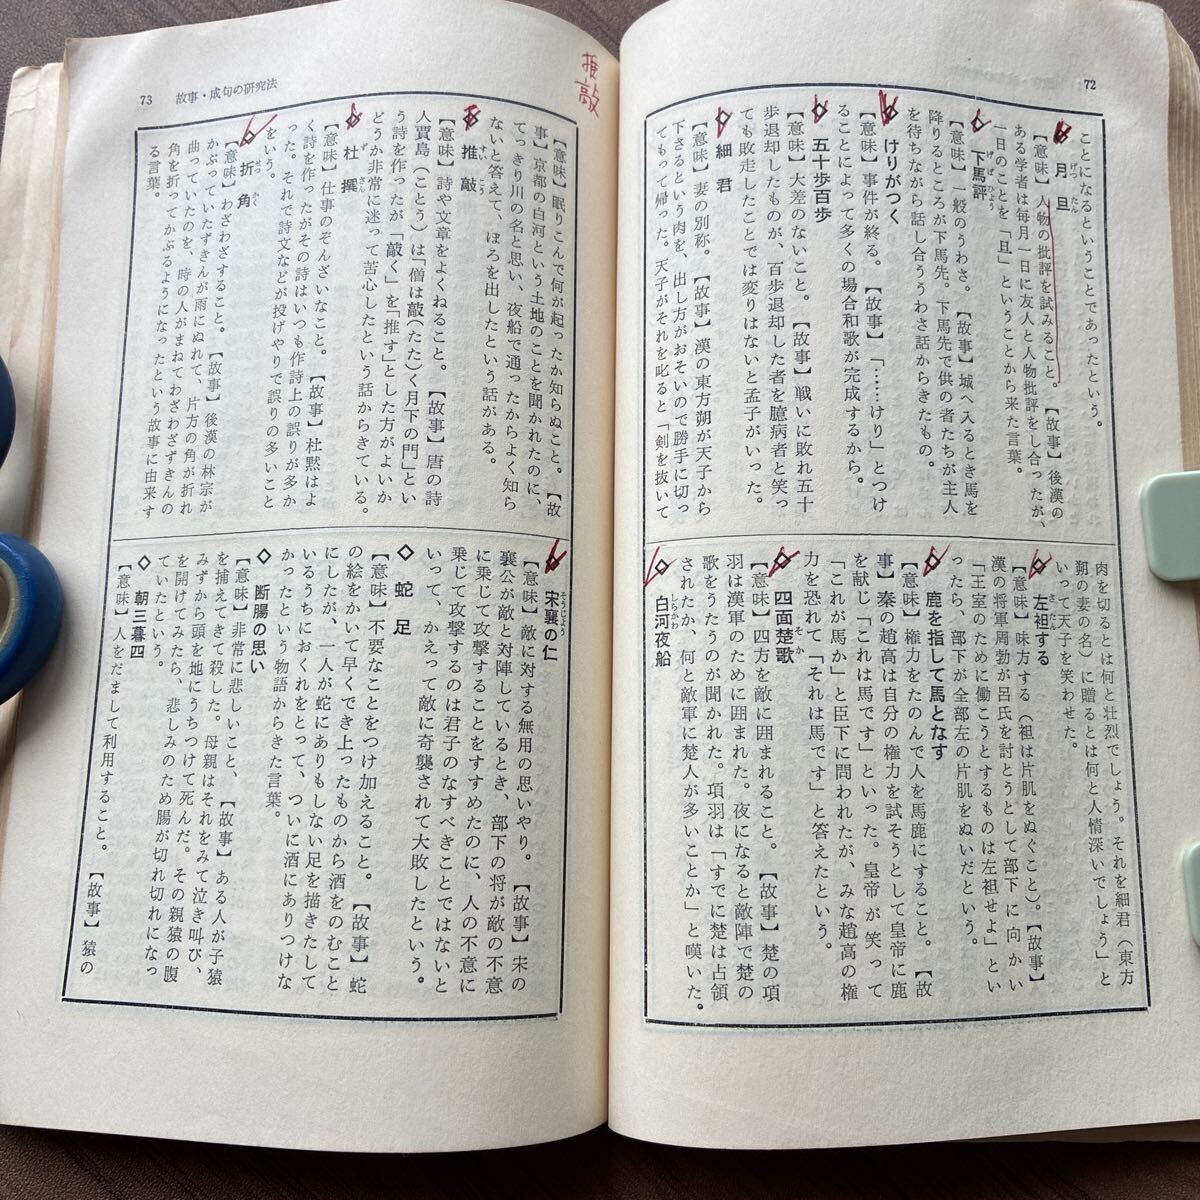 72
ことになるということであったという。
◇月旦
げつたん
【意味】人物の批評を試みること。【故事】後漢の
ある学者は毎月一日に友人と人物批評をし合ったが、
一日のことを「旦」ということから来た言葉。
◇下馬評
げばひょう
【意味】一般のうわさ。【故事】城へ入るとき馬を
降りるところが下馬先。下馬先で供の者たちが主人
を待ちながら話し合ううわさ話からきたもの。
◇けりがつく
【意味】事件が終る。【故事】「……けり」とつけ
ることによって多くの場合和歌が完成するから。
◇五十歩百歩
【意味】大差のないこと。【故事】戦いに敗れ五十
歩退却したものが、百歩退却した者を臆病者と笑っ
ても敗走したことでは変りはないと孟子がいった。
◇細君
【意味】妻の別称。【故事】漢の東方朔が天子から
下さるという肉を、出し方がおそいので勝手に切っ
てもって帰った。天子がそれを叱ると「剣を抜いて
肉を切るとは何と壮烈でしょう。それを細君（東方
朔の妻の名）に贈るとは何と人情深いでしょう」と
いって天子を笑わせた。
◇左袒する
さたん
【意味】味方する（袒は片肌をぬぐこと）。【故事】
漢の将軍周勃が呂氏を討とうとして部下に向かい
「王室のために働こうとするものは左袒せよ」とい
ったら、部下が全部左の片肌をぬいだという。
◇鹿を指して馬となす
【意味】権力をたのんで人を馬鹿にすること。【故
事】秦の趙高は自分の権力を試そうとして皇帝に鹿
を献じ「これは馬です」といった。皇帝が笑って
「これが馬か」と臣下に問われたが、みな趙高の権
力を恐れて「それは馬です」と答えたという。
◇四面楚歌
そか
【意味】四方を敵に囲まれること。【故事】楚の項
羽は漢軍のために囲まれた。夜になると敵陣で楚の
歌をうたうのが聞かれた。項羽は「すでに楚は占領
されたか、何と敵軍に楚人が多いことか」と嘆いた。
◇白河夜船
しらかわ
73 故事・成句の研究法
推敲
【意味】眠りこんで何が起ったか知らぬこと。【故
事】京都の白河という土地のことを聞かれたのに、
てっきり川の名と思い、夜船で通ったからよく知ら
ないと答えて、ぼろを出したという話がある。
◇推敲
すいこう
【意味】詩や文章をよくねること。【故事】唐の詩
人賈島（ことう）は「僧は敲（たた）く月下の門」とい
う詩を作ったが「敲く」を「推す」とした方がよいか
どうか非常に迷って苦心したという話からきている。
◇杜撰
ずさん
【意味】仕事のぞんざいなこと。【故事】杜黙はよ
く詩を作ったがその詩はいつも作詩上の誤りが多か
った。それで詩文などが投げやりで誤りの多いこと
をいう。
◇折角
せっかく
【意味】わざわざすること。【故事】後漢の林宗が
かぶっていたずきんが雨にぬれて、片方の角が折れ
曲っていたのを、時の人がまねてわざわざずきんの
角を折ってかぶるようになったという故事に由来す
る言葉。
◇宋襄の仁
そうじょう
【意味】敵に対する無用の思いやり。【故事】宋の
襄公が敵と対陣しているとき、部下の将が敵の不意
に乗じて攻撃することをすすめたのに、人の不意に
乗じて攻撃するのは君子のなすべきことではないと
いって、かえって敵に奇襲されて大敗したという。
◇蛇足
【意味】不要なことをつけ加えること。【故事】蛇
の絵をかいて早くでき上ったものから酒をのむこと
にしたが、一人が蛇にありもしない足を描きたして
いるうちにおくれをとって、ついに酒にありつけな
かったという物語からきた言葉。
◇断腸の思い
【意味】非常に悲しいこと、【故事】ある人が子猿
を捕えてきて殺した。母親はそれをみて泣き叫び、
みずから頭を地にうちつけて死んだ。その親猿の腹
を開けてみたら、悲しみのため腸が切れ切れになっ
ていたという。
◇朝三暮四
【意味】人をだまして利用すること。【故事】猿の